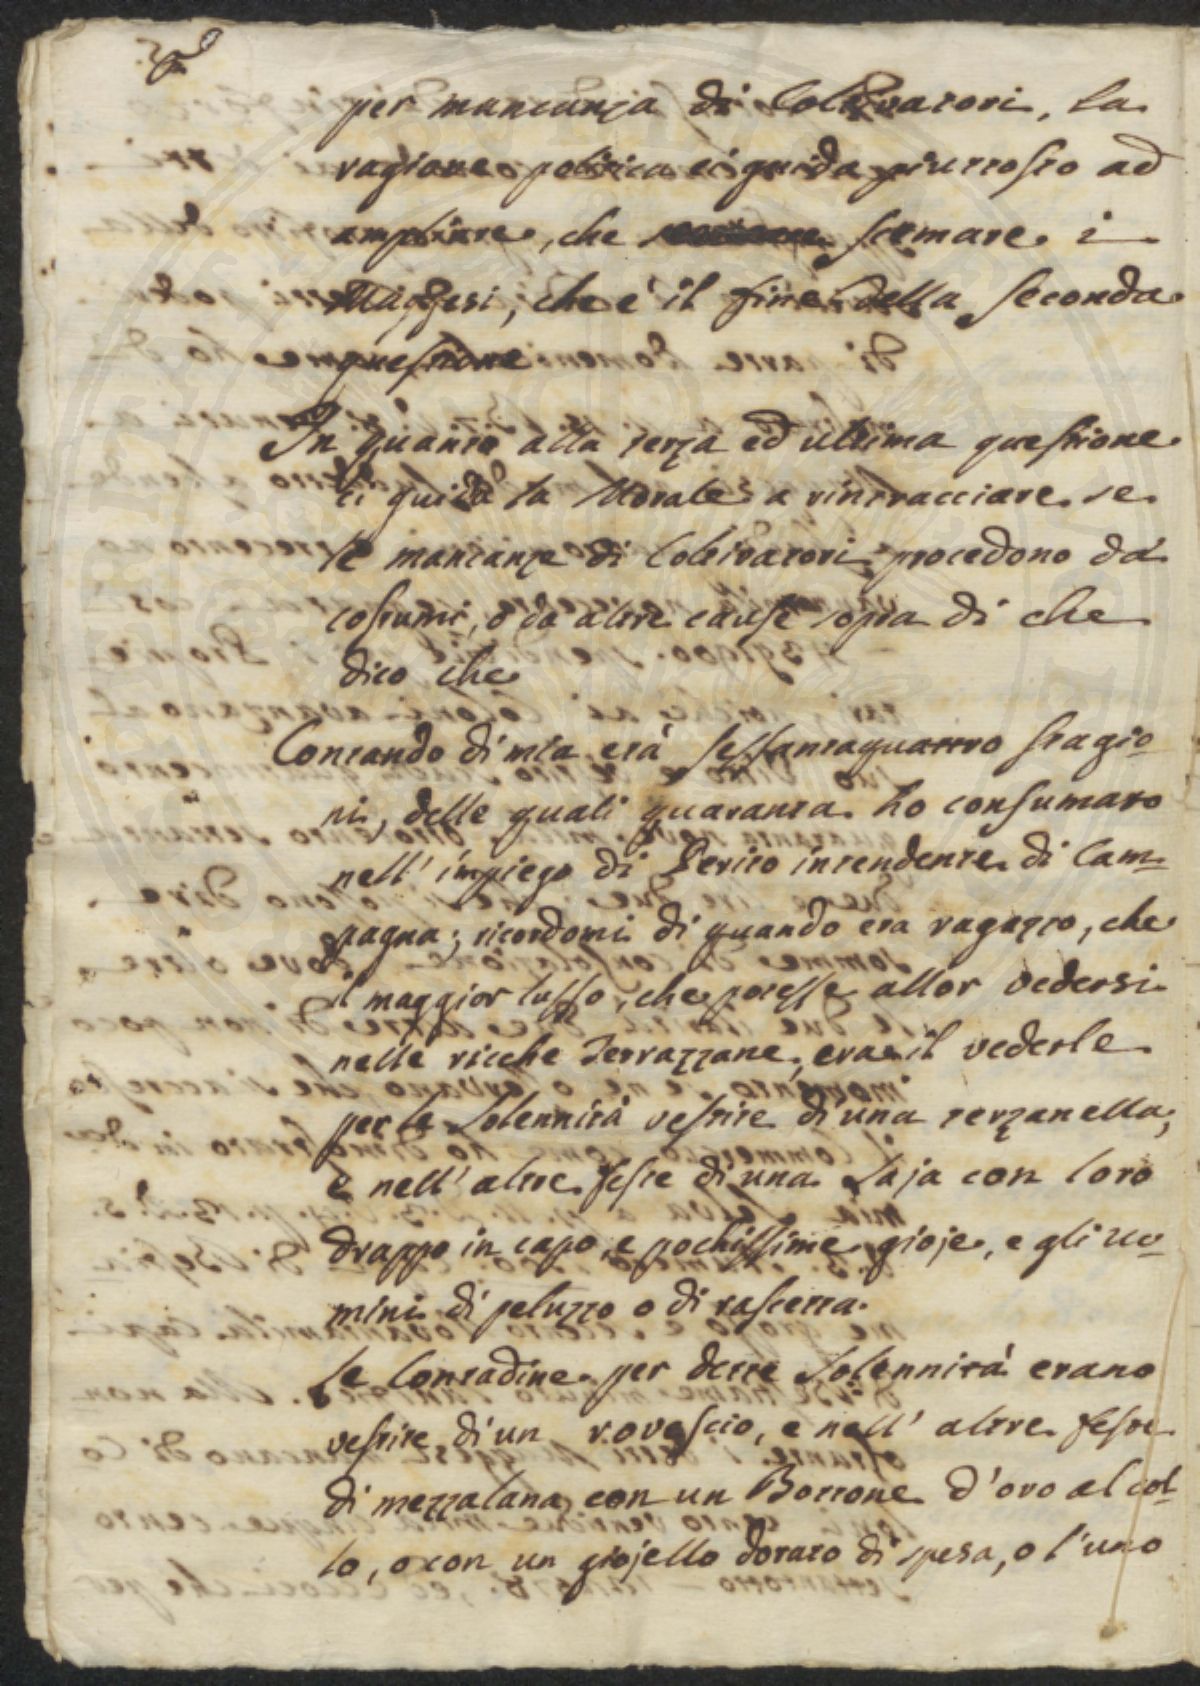 per mancanza di Coltivatori, la
ragione politica ci guida piuttosto ad
ampliare, che scemare i
Maggesi, che è il fine della seconda
questione
In quanto alla terza ed ultima questione
ci guida la Morale a rintracciare se
le mancanze di Coltivatori procedono da
costumi, o da altre cause sopra di che
dico che
Contando di mia età sessantaquattro stagio-
ni, delle quali quaranta ho consumato
nell' impiego di Perito intendente di Cam-
pagna; ricordomi di quando era ragazzo, che
il maggior lusso, che potesse allor vedersi
nelle ricche Terrazzane, era il vederle
per le Solennità vestite di una terzanella,
e nell' altre feste di una Saja con loro
drappo in capo, e pochissime gioje, e gli uo-
mini di peluzzo o di rascetta.
Le Contadine per dette Solennità erano
vestite di un rovescio, e nell' altre feste
di mezzalana con un Bottone d'oro al col-
lo, o con un giojello dorato di spesa, o l'uno